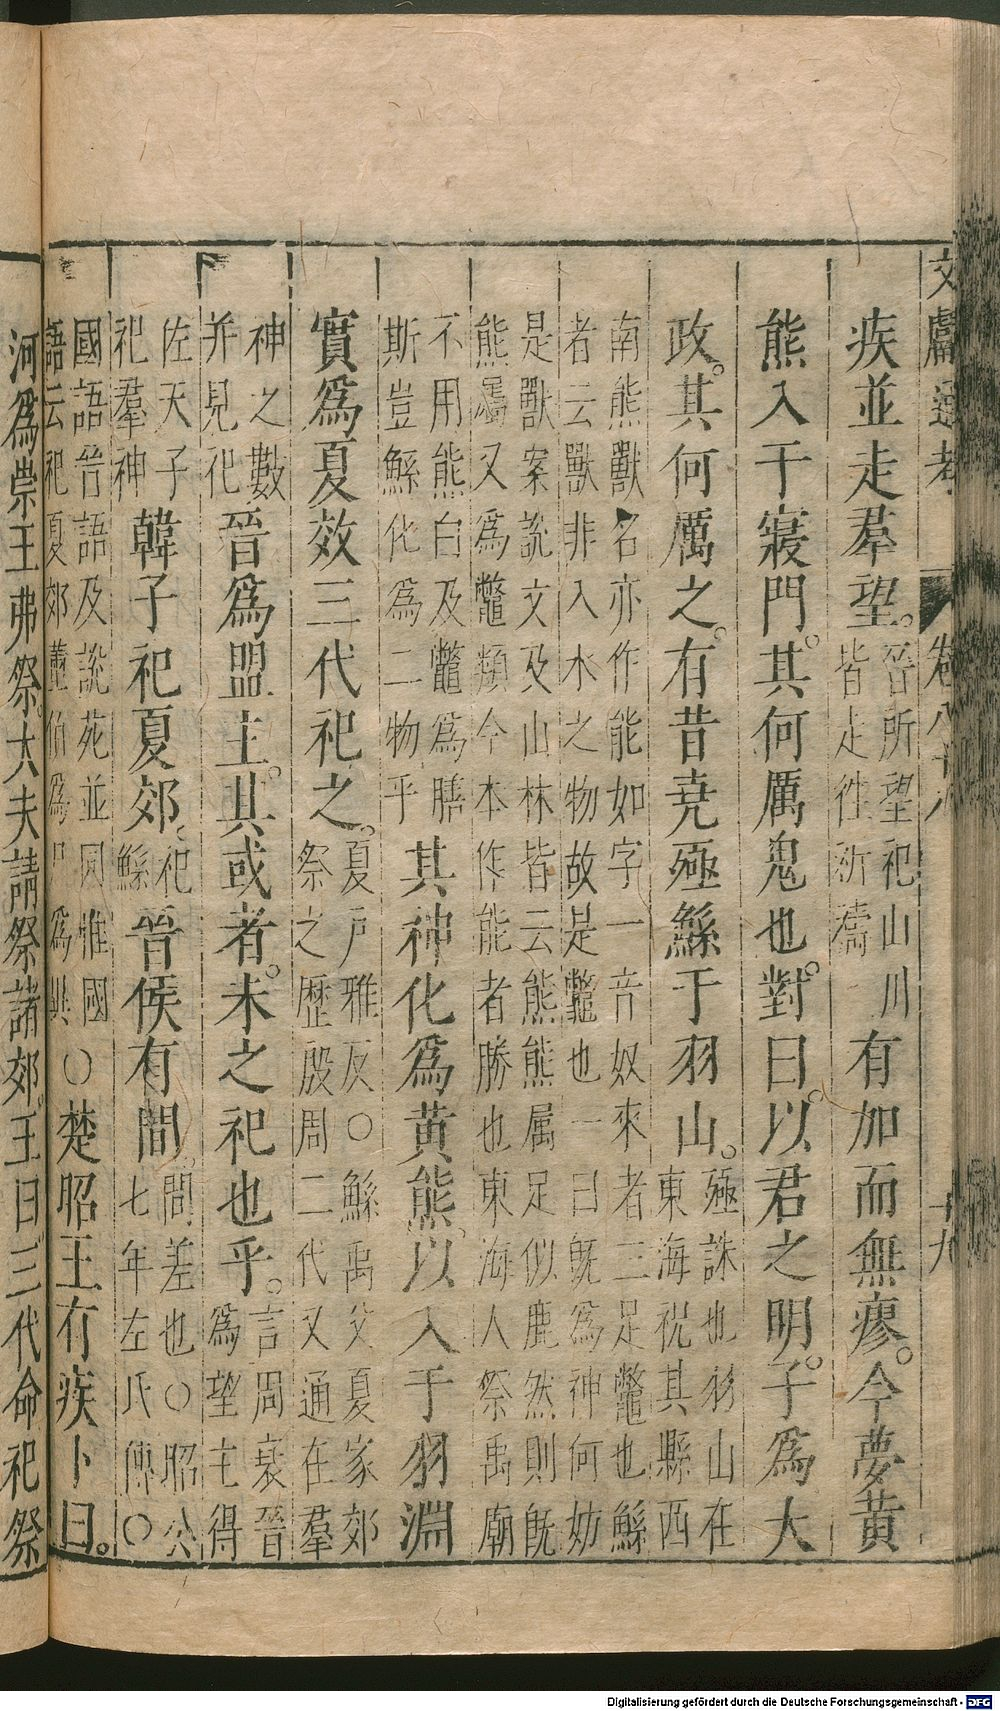 文獻通考 卷八十八 十九
疾並走羣望。晉所望祀山川皆走往祈禱有加而無瘳。今夢黄
熊入于寢門。其何厲鬼也。對曰。以君之明。子爲大
政。其何厲之。有昔堯殛鯀于羽山。殛誅也羽山在東海祝其縣西
南熊獸名亦作能如字一音奴來者三足鼈也鯀
者云獸非入水之物故是鼈也一曰旣爲神何妨
是獸案說文及山林皆云熊熊属足似鹿然則旣
熊屬又爲鼈類今本作能者勝也東海人祭禹廟
不用熊白及鼈爲膳
斯豈鯀化爲二物乎其神化爲黄熊。以入于羽淵
實爲夏效三代祀之。夏戸雅反〇鯀禹父夏家郊祭之歷殷周二代又通在羣
神之數并見祀晉爲盟主。其或者。未之祀也乎。言周衰晉爲望主得
佐天子祀羣神韓子祀夏郊。祀鯀晉侯有間。間差也〇昭公七年左氏傳〇
國語晉語及說苑並同惟國語云祀夏郊董伯爲尸爲異〇楚昭王有疾卜曰。
河爲祟王弗祭。大夫請祭諸郊。王曰。三代命祀祭
Digitalisierung gefördert durch die Deutsche Forschungsgemeinschaft - DFG